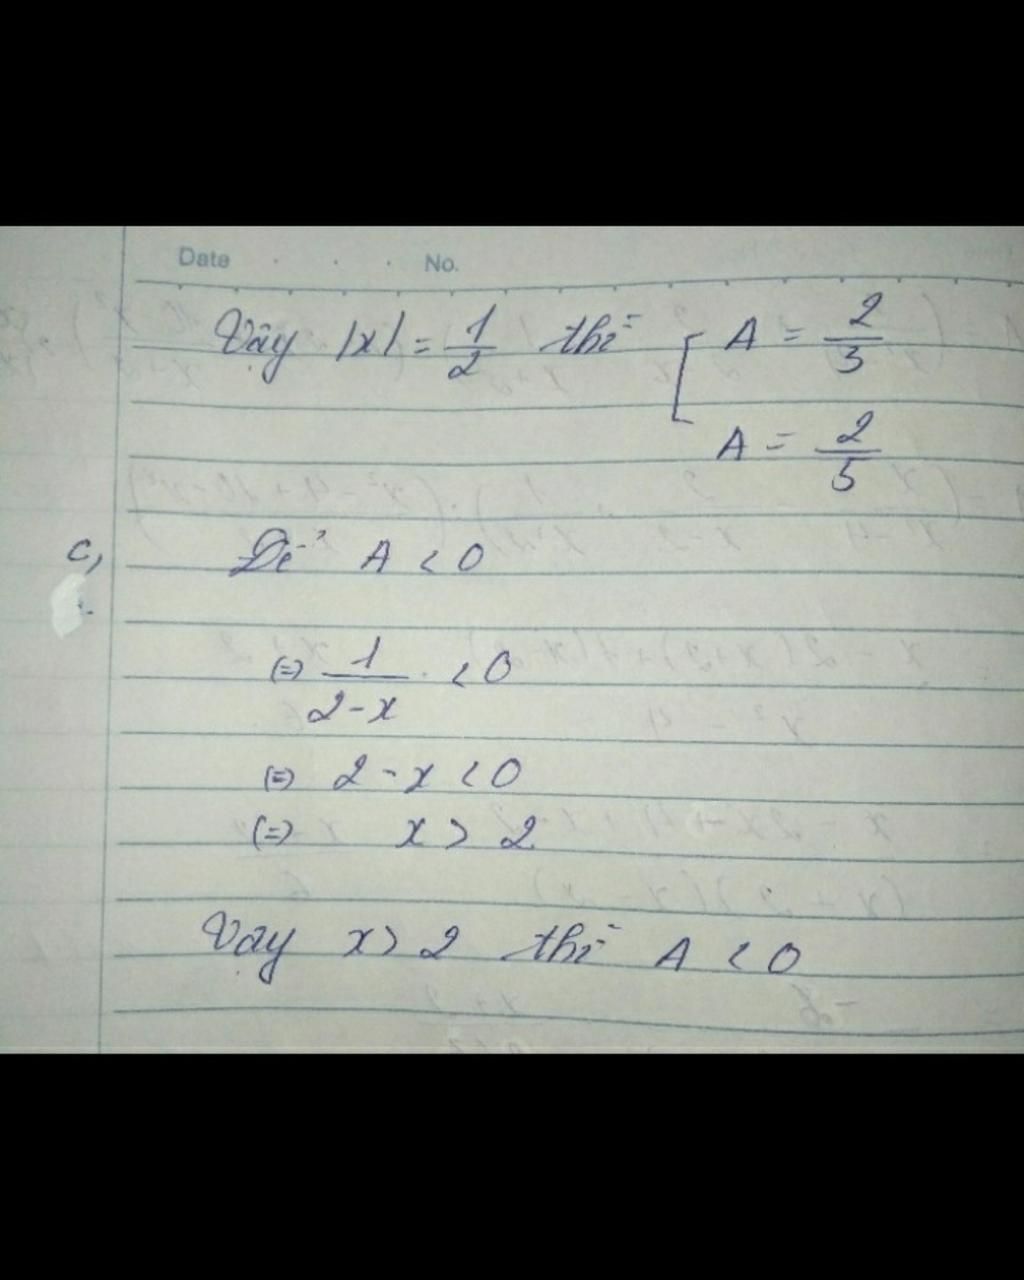 Date . . . No.
Vậy |x| = 1/2 thì [ A = 2/3
A = 2/5
c, Để A < 0
(=) 1/2-x < 0
(=) 2-x < 0
(=) x > 2
Vậy x > 2 thì A < 0